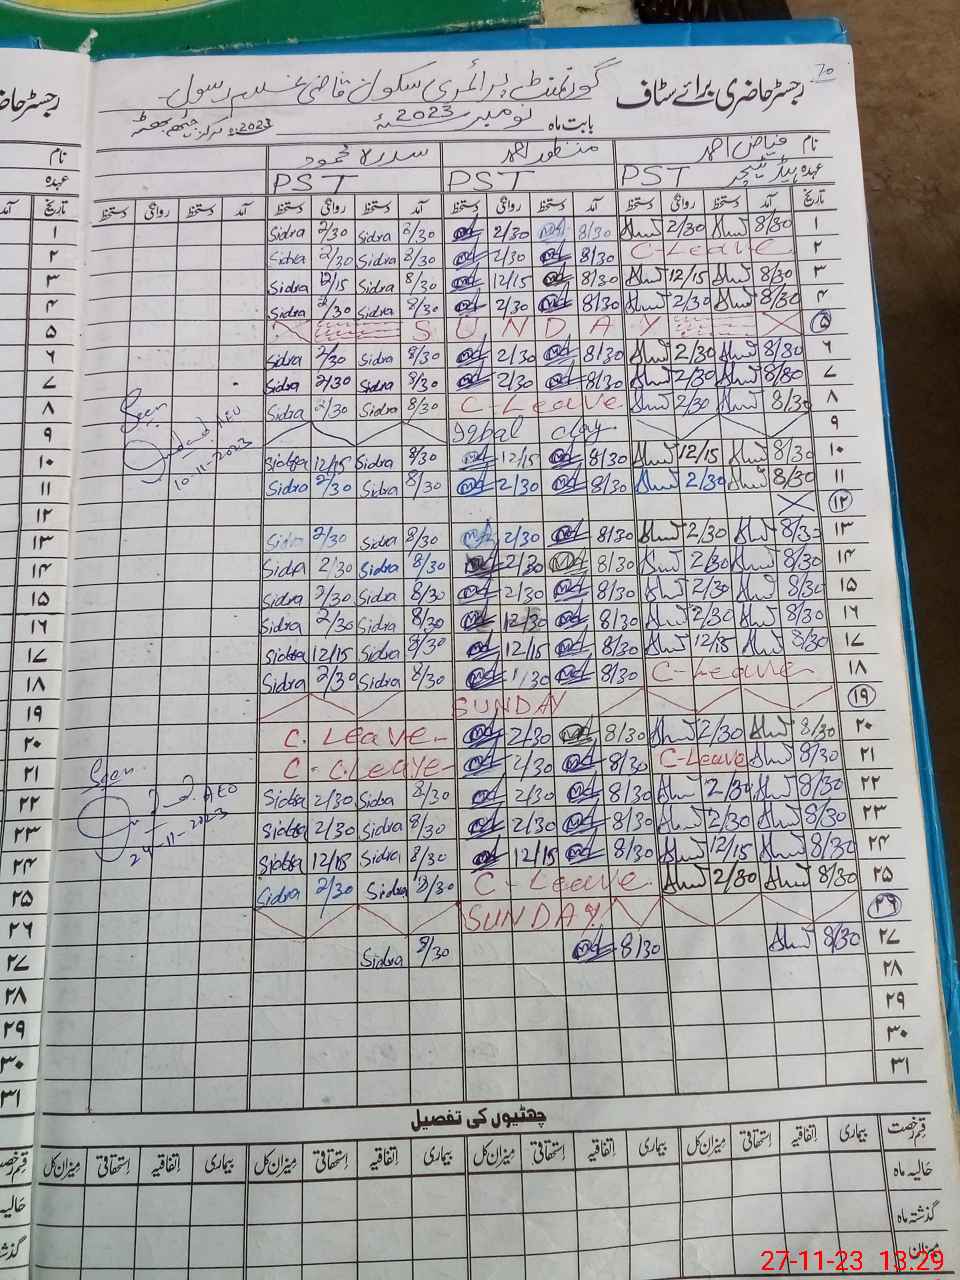 رجسٹر حاضری برائے سٹاف گورنمنٹ پرائمری سکول قاضی غلام رسول 70
بابت ماہ نومبر 2023ء
نام فیاض احمد منظور احمد سدرہ محمود
عہدہ ہیڈ ٹیچر PST PST PST
تاریخ آمد دستخط روانگی دستخط آمد دستخط روانگی دستخط آمد دستخط روانگی دستخط آمد دستخط روانگی دستخط
۱ 8/30 2/30 8/30 2/30 8/30 Sidra 2/30 Sidra
۲ C-Leave 8/30 2/30 8/30 Sidra 2/30 Sidra
۳ 8/30 12/15 8/30 12/15 8/30 Sidra 12/15 Sidra
۴ 8/30 2/30 8/30 2/30 8/30 Sidra 2/30 Sidra
۵ SUNDAY
۶ 8/30 2/30 8/30 2/30 8/30 Sidra 2/30 Sidra
۷ 8/30 2/30 8/30 2/30 8/30 Sidra 2/30 Sidra
۸ 8/30 2/30 C-Leave 8/30 Sidra 2/30 Sidra Seen
۹ Iqbal day AEO
۱۰ 8/30 12/15 8/30 12/15 8/30 Sidra 12/15 Sidra 10-11-2023
۱۱ 8/30 2/30 8/30 2/30 8/30 Sidra 2/30 Sidra
۱۲
۱۳ 8/30 2/30 8/30 2/30 8/30 Sidra 2/30 Sidra
۱۴ 8/30 2/30 8/30 2/30 8/30 Sidra 2/30 Sidra
۱۵ 8/30 2/30 8/30 2/30 8/30 Sidra 2/30 Sidra
۱۶ 8/30 2/30 8/30 12/30 8/30 Sidra 2/30 Sidra
۱۷ 8/30 12/15 8/30 12/15 8/30 Sidra 12/15 Sidra
۱۸ C-Leave 8/30 1/30 8/30 Sidra 2/30 Sidra
۱۹ SUNDAY
۲۰ 8/30 2/30 8/30 2/30 C. Leave
۲۱ 8/30 C-Leave 8/30 2/30 C-Leave Seen
۲۲ 8/30 2/30 8/30 2/30 8/30 Sidra 2/30 Sidra AEO
۲۳ 8/30 2/30 8/30 2/30 8/30 Sidra 2/30 Sidra 24-11-2023
۲۴ 8/30 12/15 8/30 12/15 8/30 Sidra 12/15 Sidra
۲۵ 8/30 2/30 C-Leave 8/30 Sidra 2/30 Sidra
۲۶ SUNDAY
۲۷ 8/30 8/30 8/30 Sidra
۲۸
۲۹
۳۰
۳۱
چھٹیوں کی تفصیل
قسم رخصت بیماری اتفاقیہ استحقاقی میزان کل بیماری اتفاقیہ استحقاقی میزان کل بیماری اتفاقیہ استحقاقی میزان کل بیماری اتفاقیہ استحقاقی میزان کل
حالیہ ماہ
گذشتہ ماہ
میزان
27-11-23 13:29